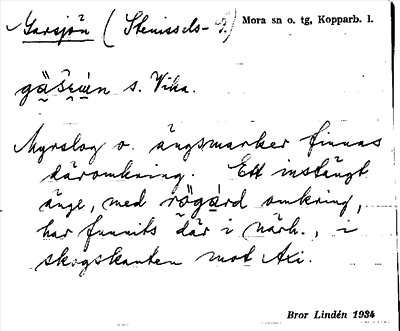 Garsjön (Stenissels- G.) Mora sn o. tg, Kopparb. l.
s. Vika.
Myrslog o. ängsmarker finnas
däromkring. Ett instängt
änge, med rögärd omkring,
har funnits där i närh., i
skogskanten mot Axi.
Bror Lindén 1934